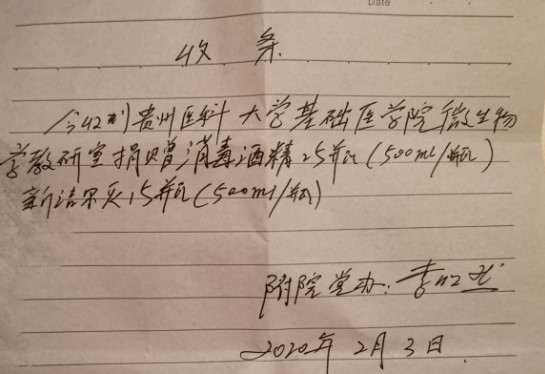 Date
收 条
今收到贵州医科大学基础医学院微生物
学教研室捐赠消毒酒精25瓶(500ml/瓶)
新洁尔灭15瓶(500ml/瓶)
附院党办:李
2020年2月3日.